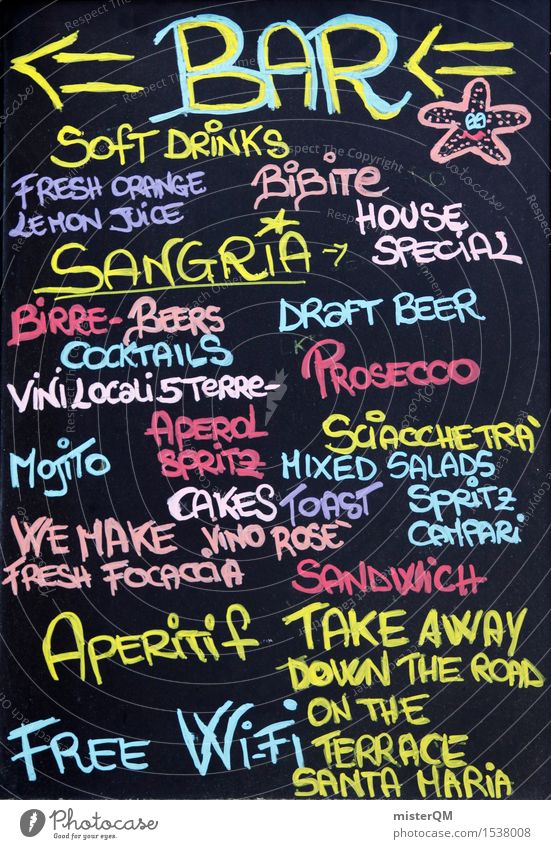 BAR
SOFT DRINKS
FRESH ORANGE
LEMON JUICE
BIBITE
HOUSE
SPECIAL
SANGRIA
BIRRE-BEERS
DRAFT BEER
COCKTAILS
PROSECCO
VINI LOCALI 5 TERRE-
APEROL
SPRITZ
SCIACCHETRA'
MOJITO
MIXED SALADS
CAKES
TOAST
SPRITZ
CAMPARI
WE MAKE
FRESH FOCACCIA
VINO ROSE'
SANDWICH
APERITIF
TAKE AWAY
DOWN THE ROAD
ON THE
TERRACE
SANTA MARIA
FREE WI-FI
PHOTOCASE
Good for your eyes.
misterQM
ID 1538008